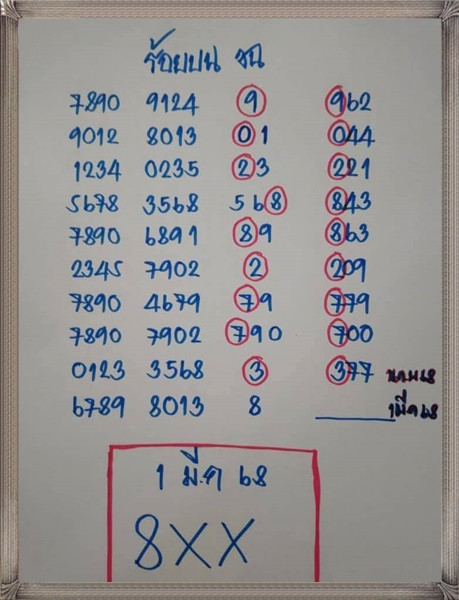 ร้อยบน ชน
7890 9124 9 962
9012 8013 01 044
1234 0235 23 221
5678 3568 568 843
7890 6891 89 863
2345 7902 2 209
7890 4679 79 779
7890 7902 790 700
0123 3568 3 377
6789 8013 8 1มีค 68
1 มี.ค 68
8XX